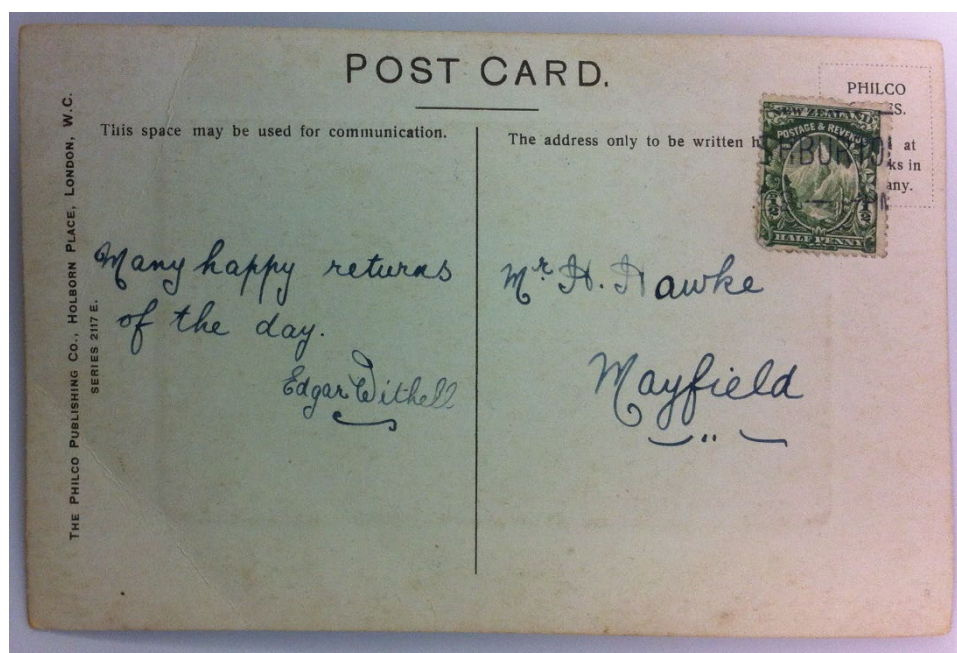 POST CARD.
THE PHILCO PUBLISHING CO., HOLBORN PLACE, LONDON, W.C.
SERIES 2117 E.
This space may be used for communication.
Many happy returns
of the day.
Edgar Withell
The address only to be written
PHILCO
at
in
NEW ZEALAND
POSTAGE & REVENUE
HALF PENNY
Mr. H. Hawke
Mayfield